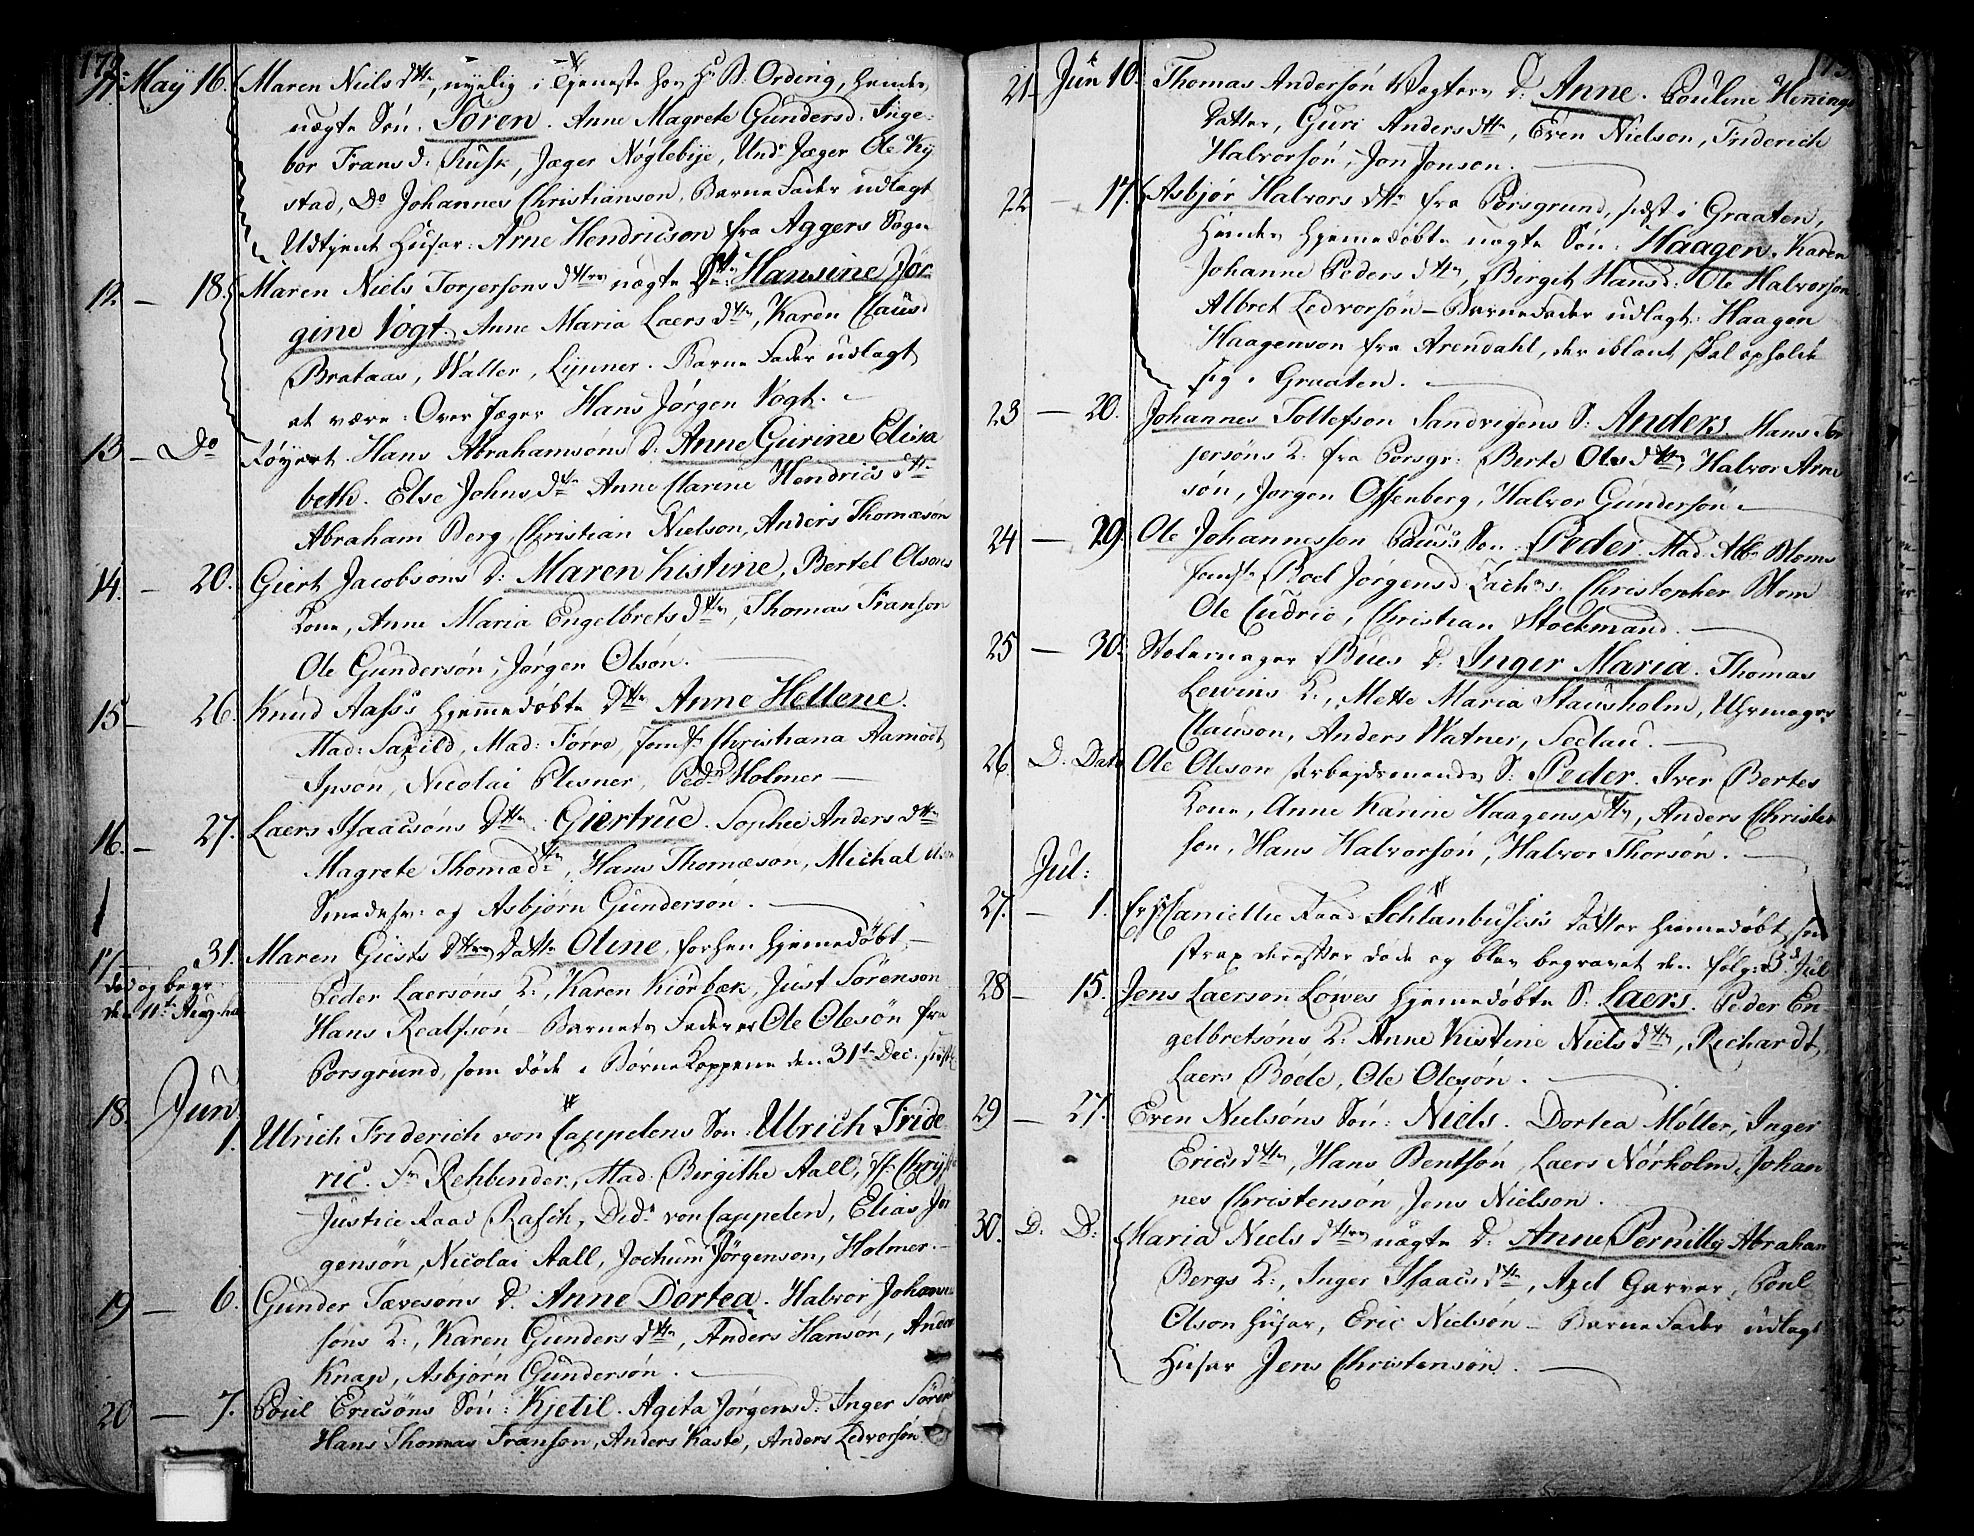 172
11. May 16. Maren Niels dttr, nyelig i Tjeneste hos Hr B. Ording, hendes
uægte Søn: Sören. Anne Magrete Gundersd. Inge-
bor Frans d: Rusk, Jæger Nøglebye, Undr Jæger Ole Ky
stad, Do Johannes Christianson, BarneFader udlagt
Udtjent Husar: Arne Hendricson fra Aggers Sogn
12. — 18. Maren Niels Torjersons dttrs uægte Dttr: Hansine Jør
gine Vogt. Anne Maria Laers dttr, Karen Clausd
Brataas, Walter, Lynner. BarneFader udlagt
at være: Over Jæger Hans Jørgen Vogt.
13 — Do Hans Abrahamsøns D: Anne Gurine Elisa
beth. Else Johns dttr Anne Marine Hendrics dttr
Abraham Berg, Christian Nielson, Anders Thomæsøn
14. — 20. Giert Jacobsøns D: Maren Kistine, Bertel Olsøns
Kone, Anne Maria Engelbrets dttr, Thomas Franson
Ole Gundersøn, Jørgen Olsøn.
15 — 26. Knud Aass's hjemmedøbte Dttr Anne Hellene.
Mad: Saxild, Mad: Förre, Jomfr Christiana Aamodt,
Ipson, Nicolai Plesner, Pedr Holmer —
16. — 27. Laers Isaacsøns Dttr: Giertrue. Sophie Anders dttr
Magrete Thomædttr, Hans Thomæson, Michal
Smedsv: og Asbjørn Gundersøn.
17 — 31. Maren Giests dttrs Dattr Oline, forhen hjemmedøbt, —
død og begr.
Peder Laersøns K:, Karen Kiörbæk, Just Sörenson
den 11te Aug
Hans Realfsøn — Barnets Fader er Ole Olesøn fra
Porsgrund, som døde i BørneKopperne den 31te Dec. sidst
Jun
18. 1. Ulrich Friderich von Cappelens Søn: Ulrich Fride
ric. Fr Rehbinder, Mad: Birgithe Aall,
Justice Raad Rasch, Didr von Cappelen, Elias Jør
gensøn, Nicolai Aall, Jochum Jørgenson, Holmer. —
19 — 6. Gunder Tævesøns D. Anne Dortea. Halvor Johan
sons K:, Karen Gunders dttr, Anders Hansøn, Ander
Knap, Asbjørn Gundersøn.
20 — 7. Poul Ericsøns Søn: Kjetil. Agita Jørgensd: Inger Sören
Hans Thomas Franson, Anders Kaste, Anders Ledvorsøn
173
21 — Jun 10. Thomas Andersøn Vegters D: Anne. Pouline Hennings
Datter, Guri Anders dttr, Even Nielson, Friderich
Halvorsøn, Jon Jonson.
22 — 17. Asbjør Halvors dttr fra Porsgrund, sidst i Graaten,
hendes hjemmedøbte uægte Søn: Haagen. Karen
Johanne Peders dttr, Birgit Hansd: Ole Halvorsøn
Albret Ledvorsøn — BarneFader udlagt: Haagen
Haagenson fra Arendahl, der iblant skal opholde
sig i Graaten.
23 — 20. Johannes Tollefson Sandvigens S: Anders. Hans Tor
jersøns K: fra Porsgr: Berte Ols dttr, Halvor Arne
søn, Jørgen Offenberg, Halvor Gundersøn.
24 — 29 Ole Johannesson Pauss's Søn: Peder. Mad. Abr. Bloms
Boel Jørgensd Zachrs, Christopher Blom
Ole Cudrio, Christian Stockmand.
25 — 30. Stolemager Bues D: Inger Maria. Thomas
Lewins K:, Mette Maria Stausholm, Uhrmager
Clauson, Anders Watner, Seelau.
26. D. Dato Ole Oleson Arbejdsmands S: Peder. Iver Bertes
Kone, Anne Karine Haagens dttr, Anders Christen
son, Hans Halvorsøn, Halvor Thorsøn.
Jul:
27. — 1. Raad Schlanbusch's Datter hjemmedøbt,
strax derefter døde og blev begravet den følg: 3d Jul
28 — 15. Jens Laerson Löwes hjemmedøbte S: Laers. Peder En-
gelbretsøns K: Anne Kistine Niels dttr, Richardt,
Laers Bøele, Ole Olesøn.
29 — 27. Even Nielsøns Søn: Niels. Dortea Møller, Inger
Erics dttr, Hans Bentsøn, Laers Nörholm, Johan
nes Christensøn, Jens Nielson.
30. D: D: Maria Niels dttrs uægte D: Anne Pernille, Abraham
Bergs K:, Inger Isaacs dttr, Axel Garver, Poul
Olson Husar, Eric Nielsøn — BarneFader udlagt
Husar Jens Christensøn.